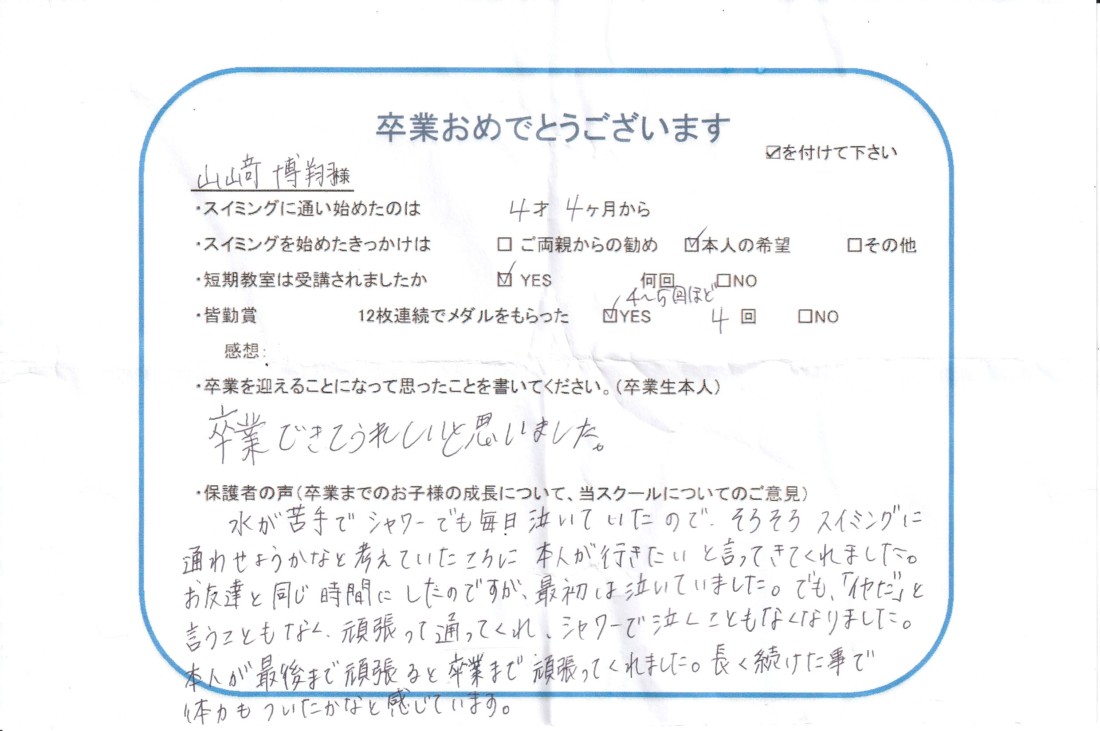 卒業おめでとうございます
☑を付けて下さい
山﨑 博翔様
・スイミングに通い始めたのは 4才 4ヶ月から
・スイミングを始めたきっかけは □ ご両親からの勧め ☑本人の希望 □その他
・短期教室は受講されましたか ☑ YES 何回 □NO
4〜5回ほど
・皆勤賞 12枚連続でメダルをもらった ☑YES 4 回 □NO
感想:
・卒業を迎えることになって思ったことを書いてください。(卒業生本人)
卒業できてうれしいと思いました。
・保護者の声(卒業までのお子様の成長について、当スクールについてのご意見)
水が苦手でシャワーでも毎日泣いていたので、そろそろスイミングに
通わせようかなと考えていたころに本人が行きたいと言ってきてくれました。
お友達と同じ時間にしたのですが、最初は泣いていました。でも、「イヤだ」と
言うこともなく、頑張って通ってくれ、シャワーで泣くこともなくなりました。
本人が最後まで頑張ると卒業まで頑張ってくれました。長く続けた事で
体力もついたかなと感じています。